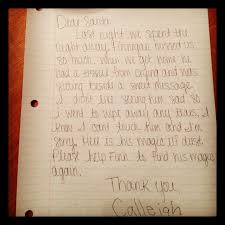 Dear Santa
Last night we spent the
night away. Finnegan missed us
so much. when we got home he
had a from crying and was
sitting beside a sweet message.
I didn't like seeing him sad so
I went to wipe away any tears. I
know I cant touch him and I'm
sorry. Here is his magic dust.
Please help Finn to find his magic
again.
Thank you
Calleigh